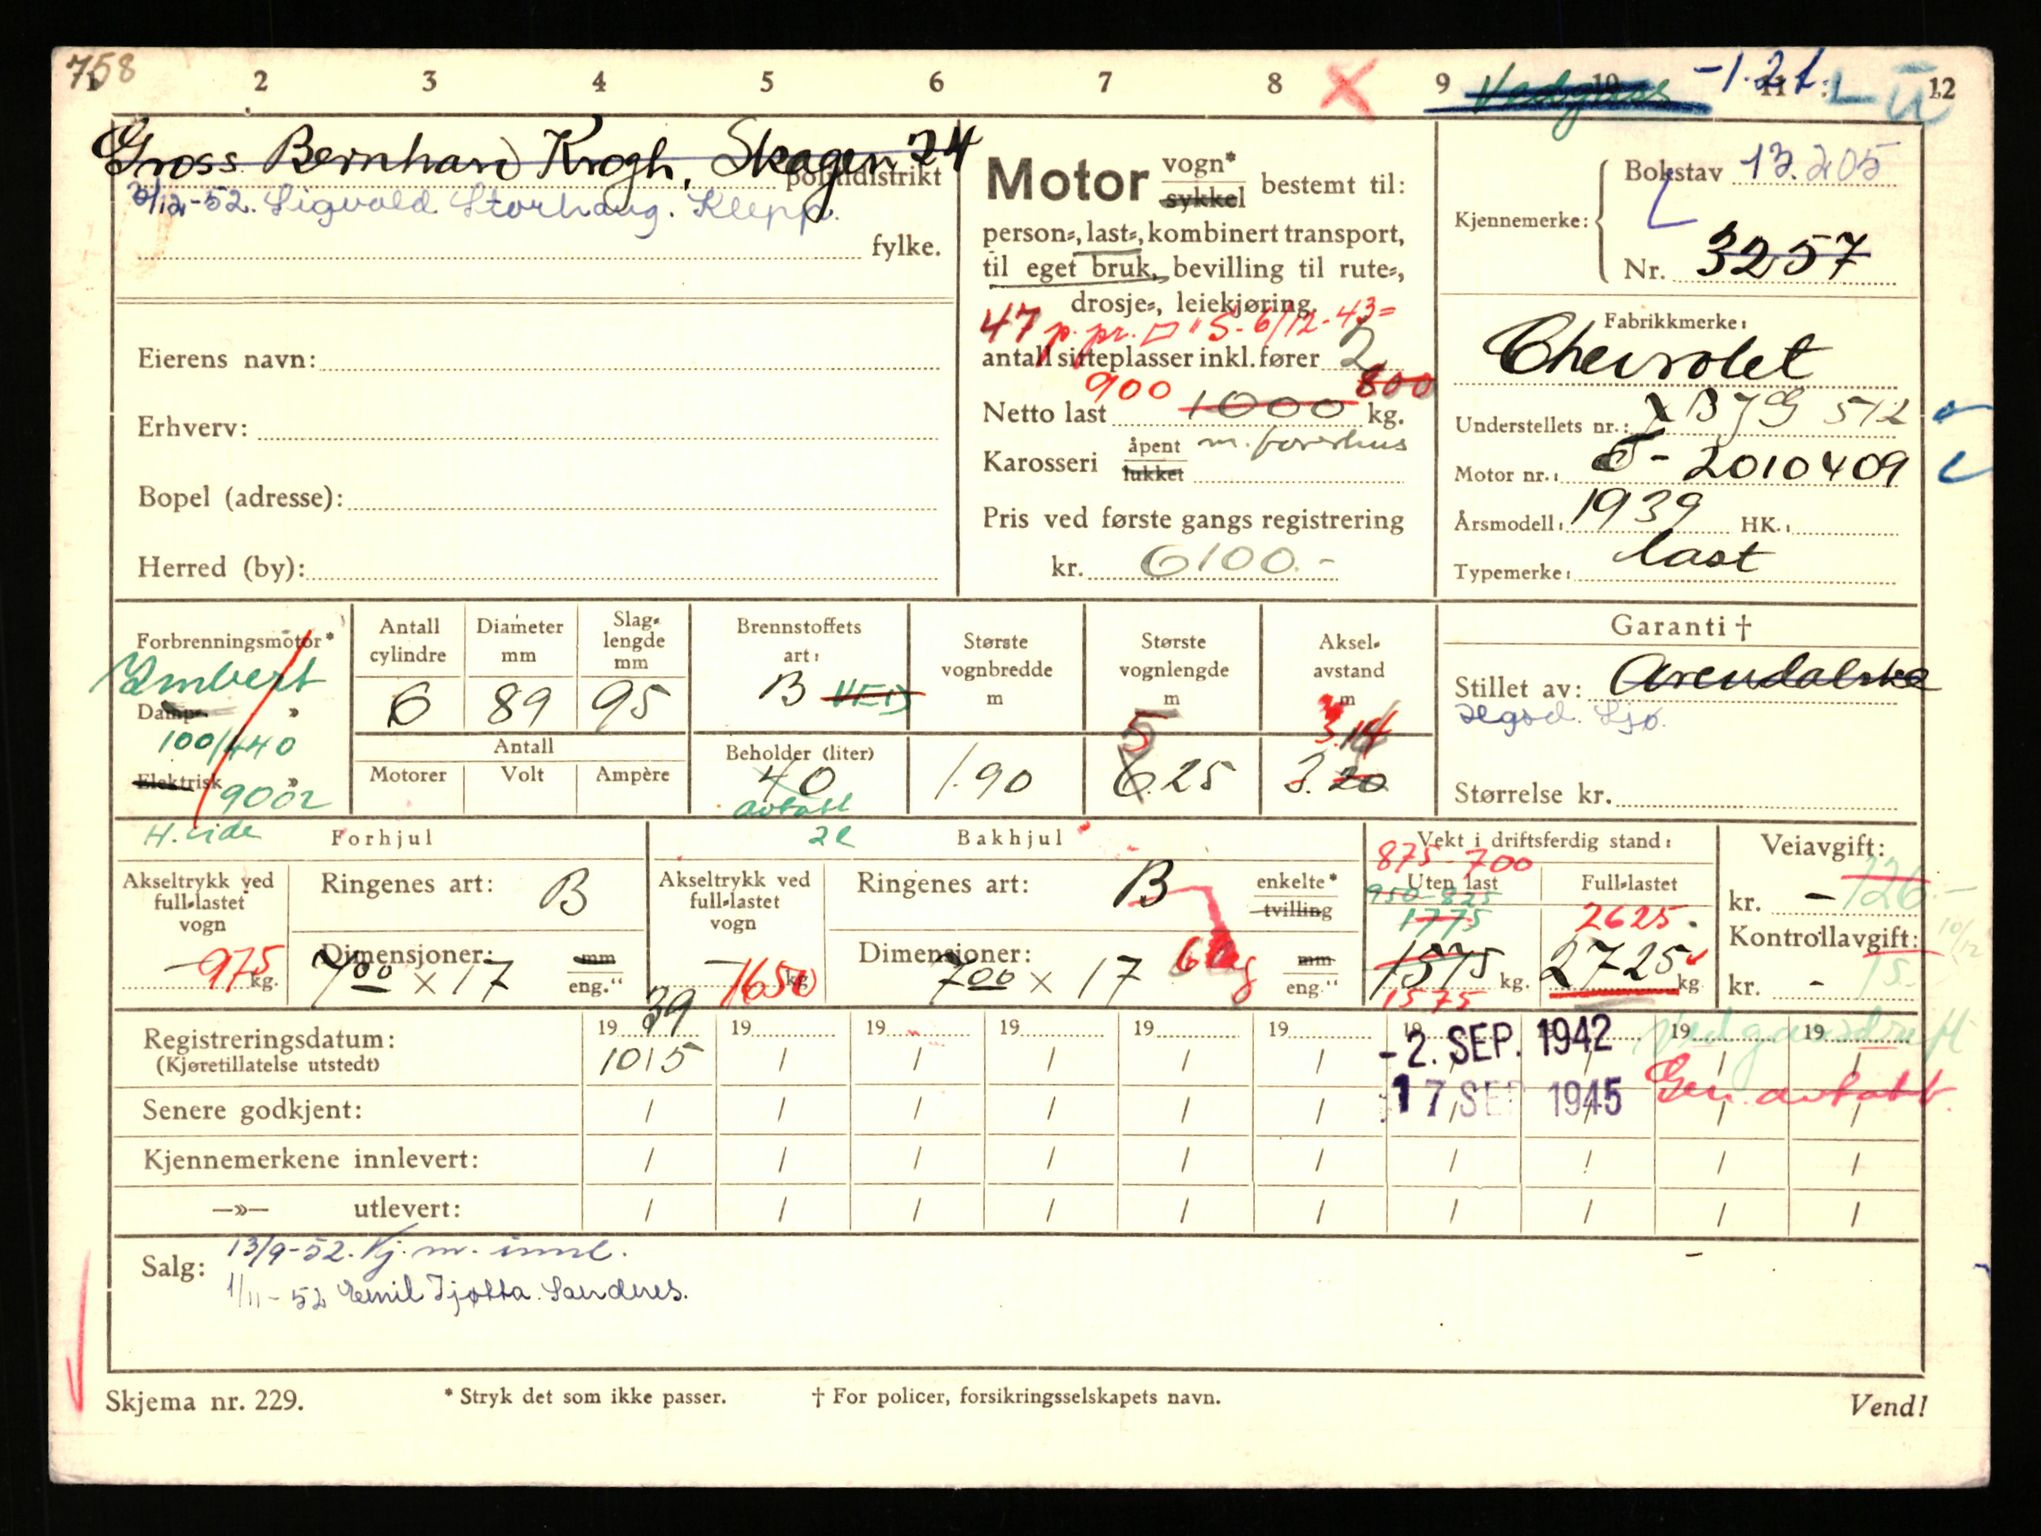 758
2 3 4 5 6 7 8 X 9 Vedgass 10 -1.21. 12
Gross Bernhard Krogh, Skagen 24
politidistrikt
3/12-52. Sigvald Storhaug. Klepp.
fylke.
Eierens navn:
Erhverv:
Bopel (adresse):
Herred (by):
Motor vogn* sykkel bestemt til:
person-, last-, kombinert transport,
til eget bruk, bevilling til rute-,
drosje-, leiekjøring,
47 p. pr. "S- 6/12-43=
antall sitteplasser inkl. fører 2
900 800
Netto last 1000 kg.
Karosseri åpent lukket m. førerhus
Pris ved første gangs registrering
kr. 6100.-
Kjennemerke: Bokstav 13.205
L
Nr. 3257
Fabrikkmerke:
Chevrolet
Understellets nr.: X BJG 512
Motor nr.: 2010409
Årsmodell: 1939 HK.:
Typemerke: last
Forbrenningsmotor*
Imbert
Damp- »
100/440
Elektrisk »
H. side
Antall cylindre
6
Diameter mm
89
Slaglengde mm
95
Antall
Motorer Volt Ampère
Brennstoffets art:
B VED
Beholder (liter)
40
avtatt
Største vognbredde m
1.90
Største vognlengde m
5
6.25
Akselavstand m
3.14
3.20
Garanti †
Stillet av: Arendalske
Størrelse kr.
Forhjul
Akseltrykk ved full-lastet vogn
975 kg.
Ringenes art: B
Dimensjoner: 7.00 x 17 mm eng."
Bakhjul
Akseltrykk ved full-lastet vogn
1650 kg
Ringenes art: B enkelte* tvilling
Dimensjoner: 7.00 x 17 mm eng."
Vekt i driftsferdig stand:
875-700
Uten last Full-lastet
950-825
1775 2625
1575 kg. 2725 kg
1575
Veiavgift:
kr. - 126.-
Kontrollavgift: 10/12
kr. - 15.-
Registreringsdatum: 19 39 19 19 19 19 19 19 -2. SEP. 1942 19 19 Vedgassdrift
(Kjøretillatelse utstedt) 10/5 / / / / / / / / /
17 SEP 1945 Gen. avtatt.
Senere godkjent: / / / / / / / / / /
Kjennemerkene innlevert: / / / / / / / / / /
—»— utlevert: / / / / / / / / / /
Salg: 13/9-52. Kj. m. innl.
1/11-52 Emil Tjøtta Sandnes.
Skjema nr. 229. * Stryk det som ikke passer. † For policer, forsikringsselskapets navn. Vend!